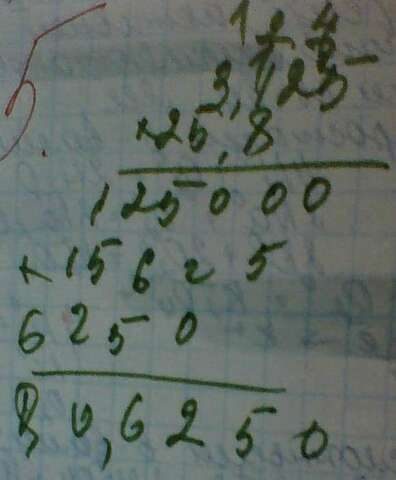 5.
1 2 4
3,125
×25,8
125000
+15625
6250
80,6250